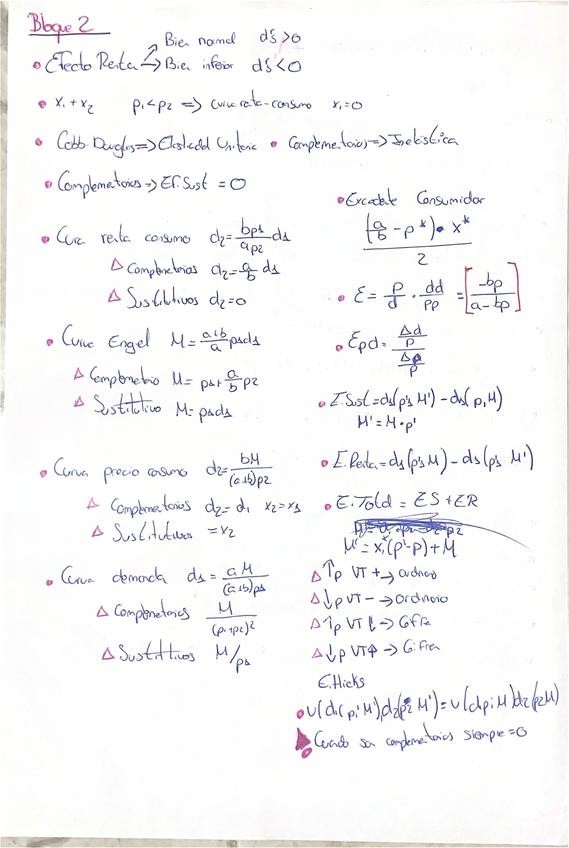 Bloque 2
Bien normal d$>0
• Efecto Renta → Bien inferior d$<0
• x₁+x₂ p₁<p₂ => curva renta-consumo x₁=0
• Cobb Douglas => Elasticidad Unitaria • Complementarios => Inelástica
• Complementarios → Ef. Sust = 0
• Curva renta consumo d₂ = bp₁/ap₂ d₁
△ Complementarios d₂ = a/b d₁
△ Sustitutivos d₂=0
• Curva Engel M = a+b/a p₁d₁
△ Complementario M = p₁+a/b p₂
△ Sustitutivo M = p₁d₁
• Curva precio consumo d₂ = bM/(a+b)p₂
△ Complementarios d₂=d₁ x₂=x₁
△ Sustitutivos =x₂
• Curva demanda d₁ = aM/(a+b)p₁
△ Complementarios M/(p₁+p₂)²
△ Sustitutivos M/p₁
• Excedente Consumidor
(a/b - p*)• x*/2
• Ɛ = p/d · dd/pp = [-bp/a-bp]
• Ɛpd = Δd/p / Δp/p
• E.Sust = d₁(p'₁ M') - d₁(p₁ M)
M' = M·p'
• E.Renta = d₁(p'₁ M) - d₁(p'₁ M')
• E.Total = ES + ER
M' = x₁*(p'-p)+M
△ ↑p VT + → ordinario
△ ↓p VT - → Ordinario
△ ↑p VT ↓ → Giffen
△ ↓p VT ↑ → Giffen
E.Hicks
• U(d₁(p₁'M'),d₂(p₂ M') = U(d₁p₁M)d₂(p₂M)
Cuando son complementarios siempre =0